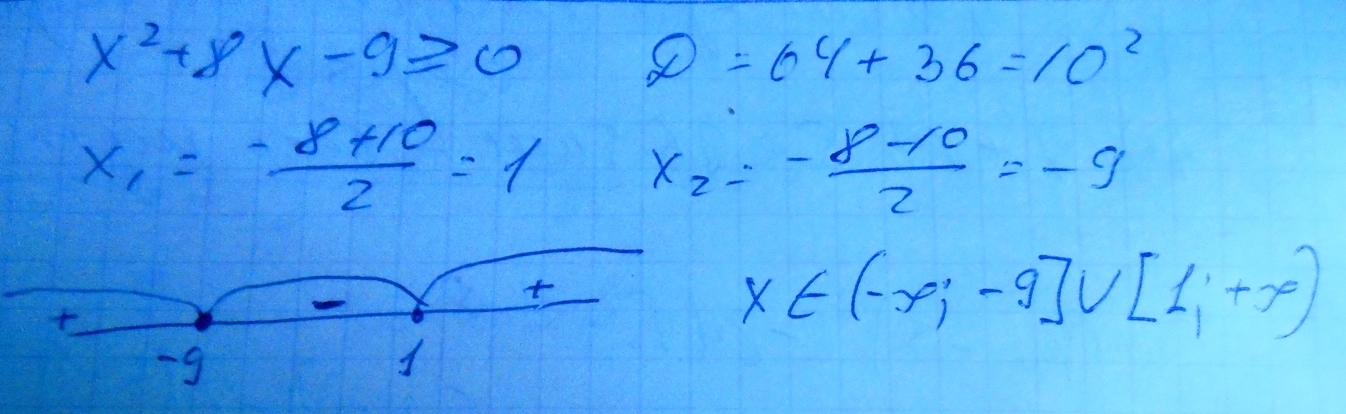 x²+8x-9≥0 D=64+36=10²
x₁=-8+10/2=1 x₂=-8-10/2=-9
+ - +
-9 1 x∈(-∞;-9]∪[1;+∞)